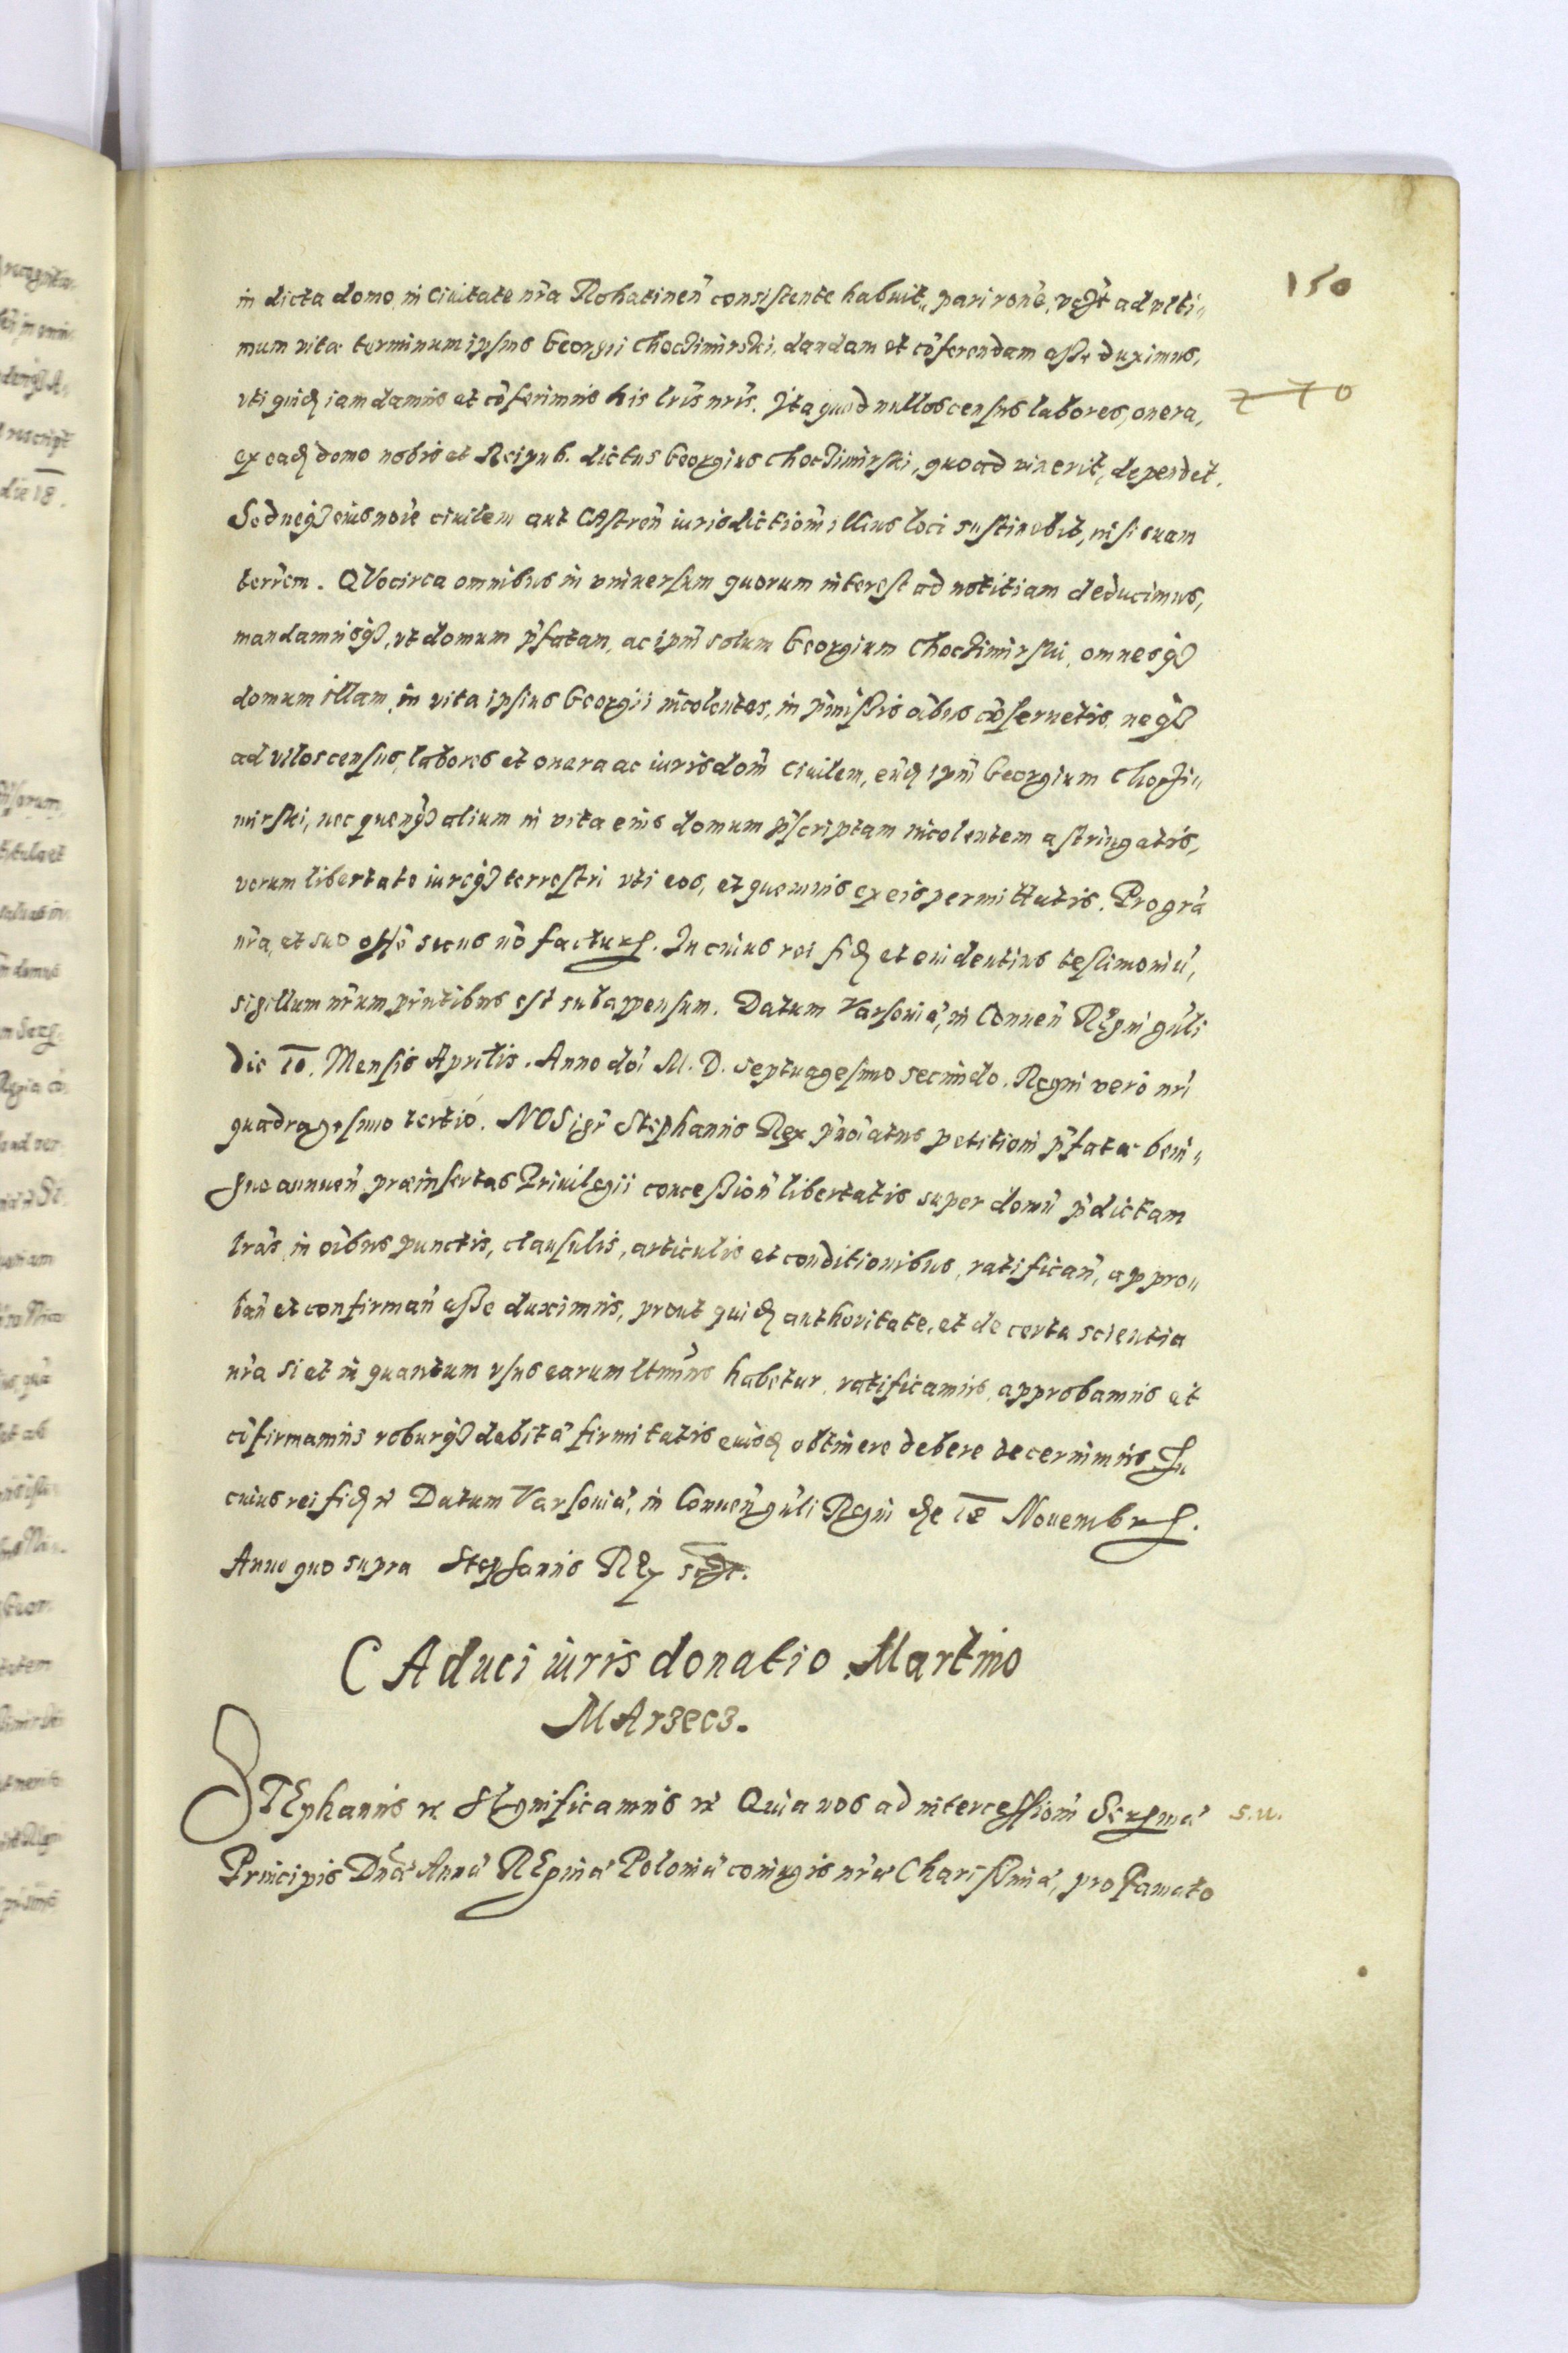 150
in dicta domo in Ciuitate nr̃a Rohatineñ consistente habuit, pari ronẽ, vsq̃ ad vlti„
mum vitæ terminum ipsius Georgii Choczimirski, dandam et cõferendam esse duximus,
vti quidẽ iam damus et cõferimus his lr̃is nr̃is. Ita quod nullos census labores, onera,
ex eadẽ domo nobis et Reipub. dictus Georgius Choczimirski, quoad vixerit, dependet.
Sed neq̃ eius noie ciuilem aut CAstreñ iurisdictionẽ illius loci sustinebit, nisi suam
terrẽm. QVocirca omnibus in vniuersum quorum interest ad notitiam deducimus,
mandamusq̃, vt domum p̃fatam, ac ipm̃ solum Georgium Choczimirski, omnesq̃
domum illam, in vita ipsius Georgii incolentes, in p̃missis oĩbus cõseruetis, neq̃
ad vllos census, labores et onera ac iurisdom̃ Ciuilem, eũdẽ ipm̃ Georgium Choczi„
mirski, nec quenq̃ alium in vita eius domum p̃scriptam incolentem astringatis,
verum libertate iureq̃ terrestri vti eos, et quemuis ex eis permittatis. Pro grã
nr̃a, et suo offõ secus nõ factur. In cuius rei fidẽ et euidentius testimoniũ,
sigillum nr̃um p̃ntibus est subappensum. Datum Varsouiæ, in Conueñ Regni gñli
die 10. Mensis Aprilis. Anno doĩ M. D. septuagesimo secundo. Regni vero nr̃i
quadragesimo tertio. NOS igr̃ Stephanus Rex p̃noĩatus petitioni p̃fatæ beni„
gne annueñ præinsertas Priuilegii concessioñ libertatis super domũ p̃dictam
lr̃as, in oĩbus punctis, clausulis, articulis et conditionibus, ratificañ, appro„
bañ et confirmañ esse duximus, prout quidẽ authoritate, et de certa scientia
nr̃a si et in quantum vsus earum ltm̃us habetur, ratificamus, approbamus et
cõfirmamus roburq̃ debitæ firmitatis eusdẽ obtinere debere decernimus. In
cuius rei fidẽ &c Datum Varsouiæ, in Conueñ gñli Regni die 18 Nouembr.
Anno quo supra Stephanus Rex sspt.
CAduci iuris donatio Martino
MArzecz.
STEphanus &c SIgnificamus &c Quia nos ad intercessionẽ Serrmæ s.u.
Principis Dnæ Annæ REginæ Poloniæ coniugis nr̃æ Charissimæ, pro Famato